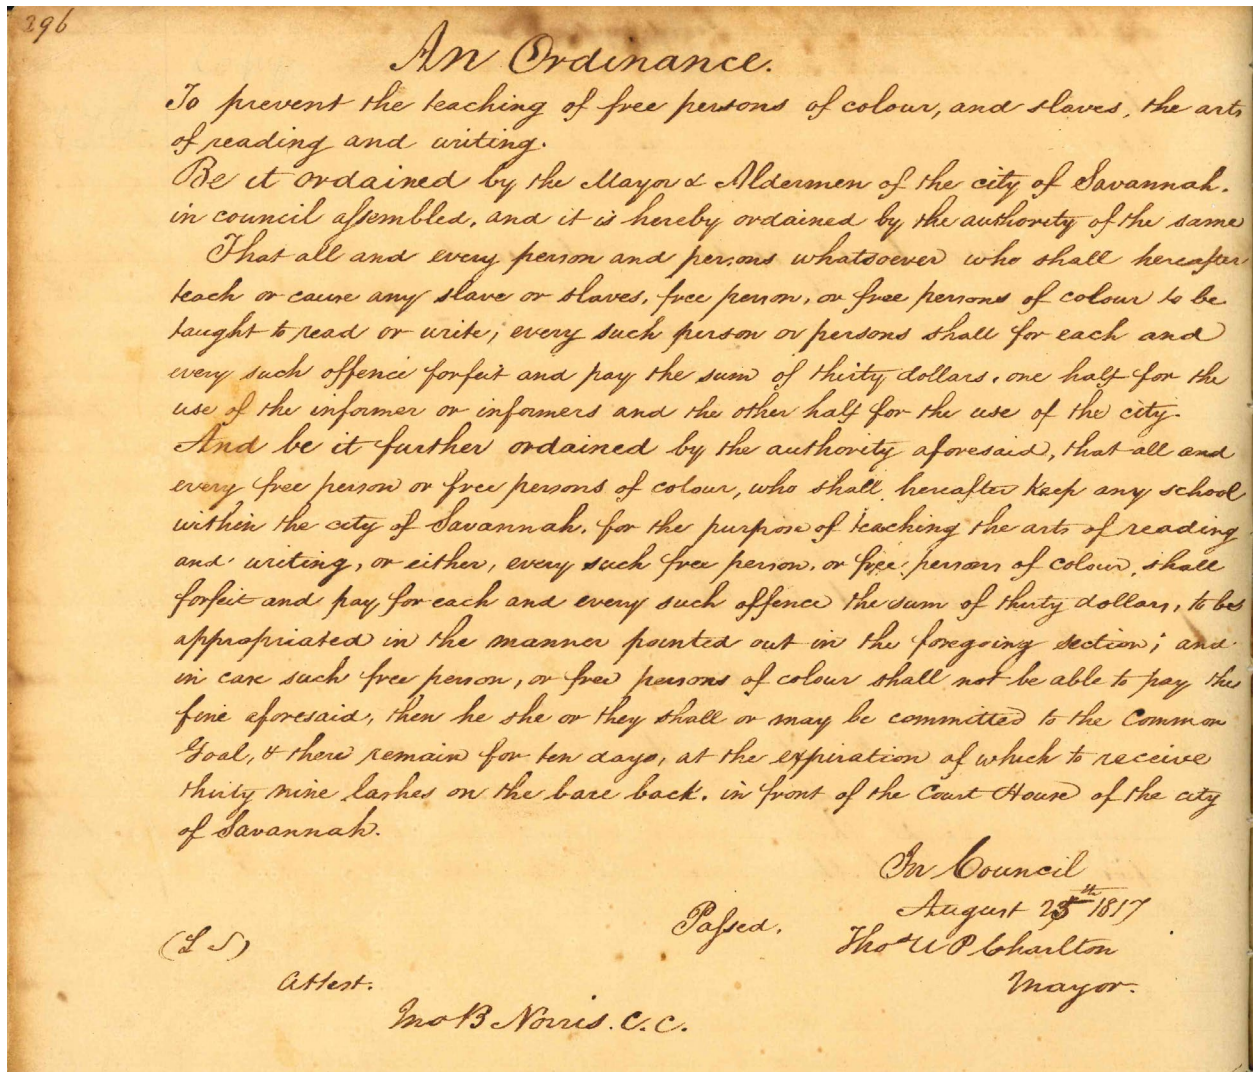 396
An Ordinance.
To prevent the teaching of free persons of colour, and slaves, the arts
of reading and writing.
Be it ordained by the Mayor & Aldermen of the city of Savannah.
in council assembled, and it is hereby ordained by the authority of the same
That all and every person and persons whatsoever who shall hereafter
teach or cause any slave or slaves, free person, or free persons of colour to be
taught to read or write; every such person or persons shall for each and
every such offence forfeit and pay the sum of thirty dollars, one half for the
use of the informer or informers and the other half for the use of the city.
And be it further ordained by the authority aforesaid, that all and
every free person or free persons of colour, who shall hereafter keep any school
within the city of Savannah, for the purpose of teaching the arts of reading
and writing, or either, every such free person, or free persons of colour, shall
forfeit and pay for each and every such offence the sum of thirty dollars, to be
appropriated in the manner pointed out in the foregoing section; and
in case such free person, or free persons of colour shall not be able to pay the
fine aforesaid, then he she or they shall or may be committed to the Common
Goal, & there remain for ten days, at the expiration of which to receive
thirty nine lashes on the bare back. in front of the Court House of the city
of Savannah.
In Council
August 25th 1817
Passed.
Tho U P Charlton
(L S)
Mayor.
Attest.
Jno B Norris. C. C.